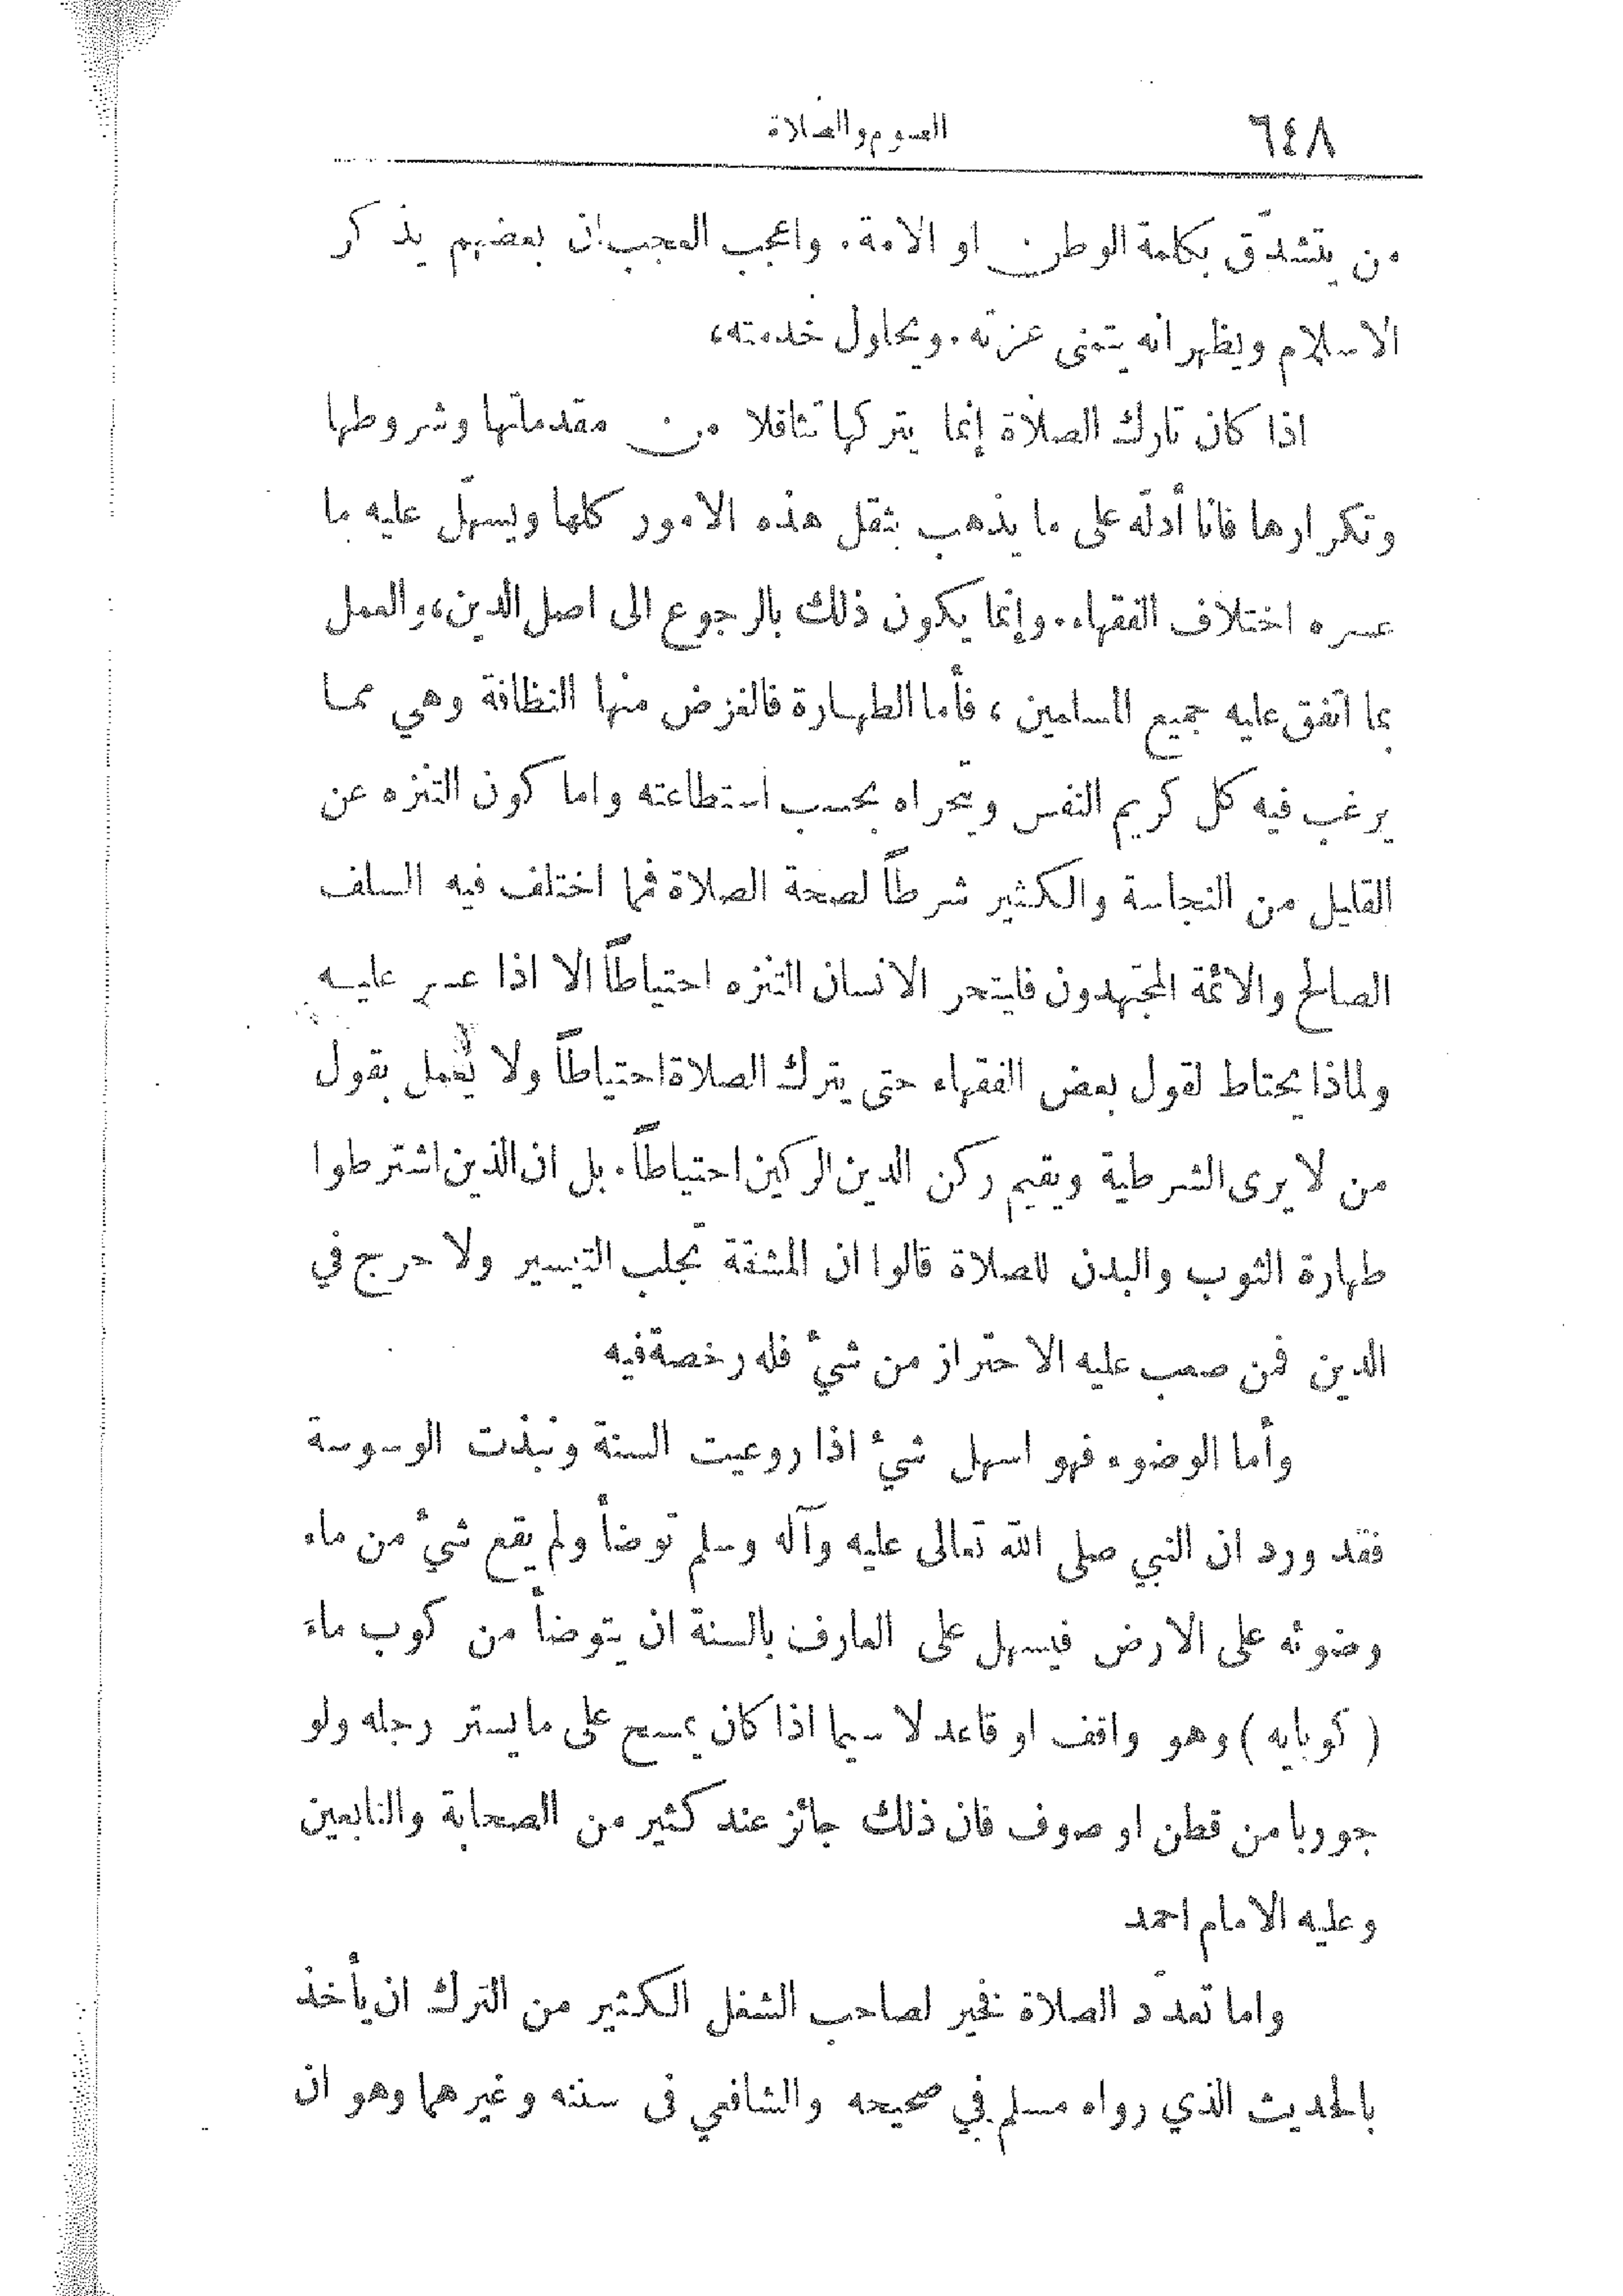 ٦٤٨
الصوم والصلاة
من يتشدّق بكلمة الوطن او الامة. واعجب العجب ان بعضهم يذكر
الاسلام ويظهر انه يتمنى عزته. ويحاول خدمته،
اذا كان تارك الصلاة إنما يتركها تثاقلا من مقدماتها وشروطها
وتكرارها فانا أدلّه على ما يذهب بثقل هذه الامور كلها ويسهّل عليه ما
عسره اختلاف الفقهاء. وإنما يكون ذلك بالرجوع الى اصل الدين، والعمل
بما اتفق عليه جميع المسلمين ، فأما الطهارة فالغرض منها النظافة وهي مما
يرغب فيه كل كريم النفس ويتحراه بحسب استطاعته واما كون التنزه عن
القليل من النجاسة والكثير شرطاً لصحة الصلاة فما اختلف فيه السلف
الصالح والائمة المجتهدون فليتحر الانسان التنزه احتياطاً الا اذا عسر عليه
ولماذا يحتاط لقول بعض الفقهاء حتى يترك الصلاة احتياطاً ولا يُعمل بقول
من لا يرى الشرطية ويقيم ركن الدين الركين احتياطاً. بل ان الذين اشترطوا
طهارة الثوب والبدن للصلاة قالوا ان المشقة تجلب التيسير ولا حرج في
الدين فمن صعب عليه الاحتراز من شيءٍ فله رخصة فيه
وأما الوضوء فهو اسهل شيءٍ اذا روعيت السنة ونبذت الوسوسة
فقد ورد ان النبي صلى الله تعالى عليه وآله وسلم توضأ ولم يقع شيءٌ من ماء
وضوئه على الارض فيسهل على العارف بالسنة ان يتوضأ من كوب ماء
( كوبايه ) وهو واقف او قاعد لا سيما اذا كان يمسح على ما يستر رجله ولو
جوربا من قطن او صوف فان ذلك جائز عند كثير من الصحابة والتابعين
وعليه الامام احمد
واما تعدّد الصلاة فخير لصاحب الشغل الكثير من الترك ان يأخذ
بالحديث الذي رواه مسلم في صحيحه والشافعي فى سننه وغيرهما وهو ان